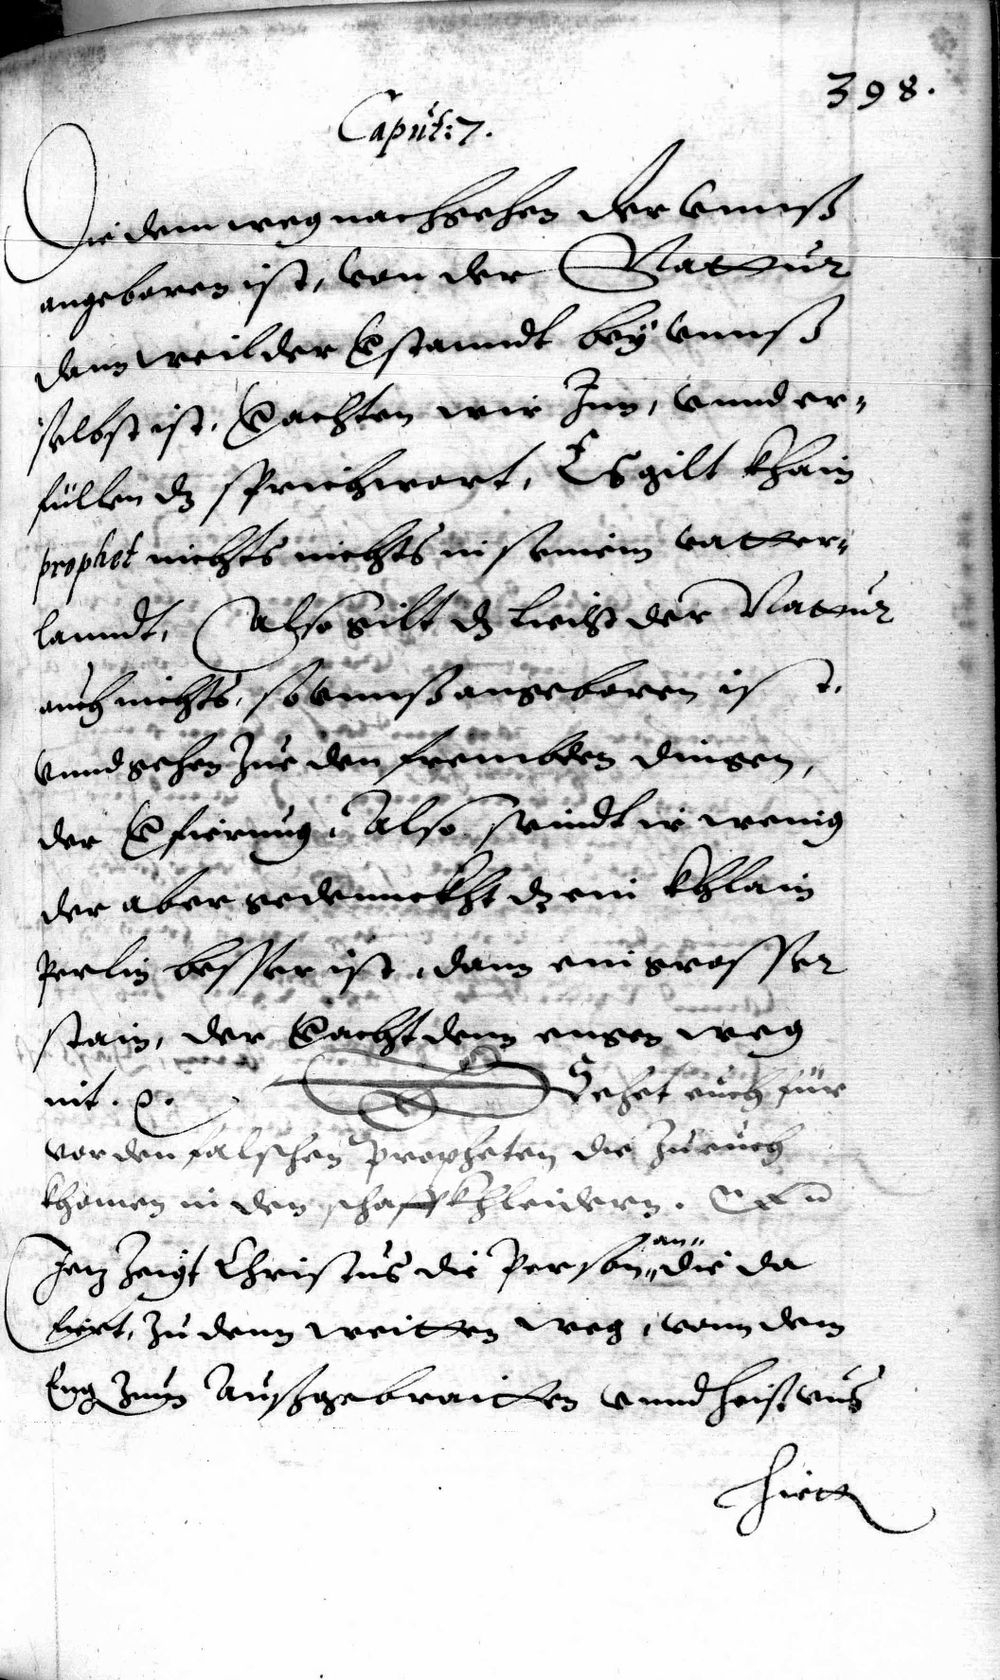 398.
Caput: 7.
Die dem weg nachgehen der vnnß
angeboren ist, von der Nattur
dann weil der Verstanndt beÿ vnnß
selbst ist, Verachten wir Inn, vnnd er-
füllen dz sprichwort, Es gilt khain
prophet nichts nichts in seinem vatter-
lanndt, Also gilt dz liecht der Nattur
auch nichts, so vnnß angeboren ist,
vnnd gehen zue den frembden dingen,
der Verfierung, Also seindt ir wenig
der aber gedennckht dz ein khlain
Perlin besser ist, dann ein grosser
stain, der Veracht denn engen weg
nit. Sehet euch für
vor den falschen Propheten die zu euch
khomen in den schaffkhleidern.
Jetz zeigt Christus die Person an die da
fiert, zu denn weitten weg, vonn dem
Eng zum Außgebraitten vnnd heist vns
hietten